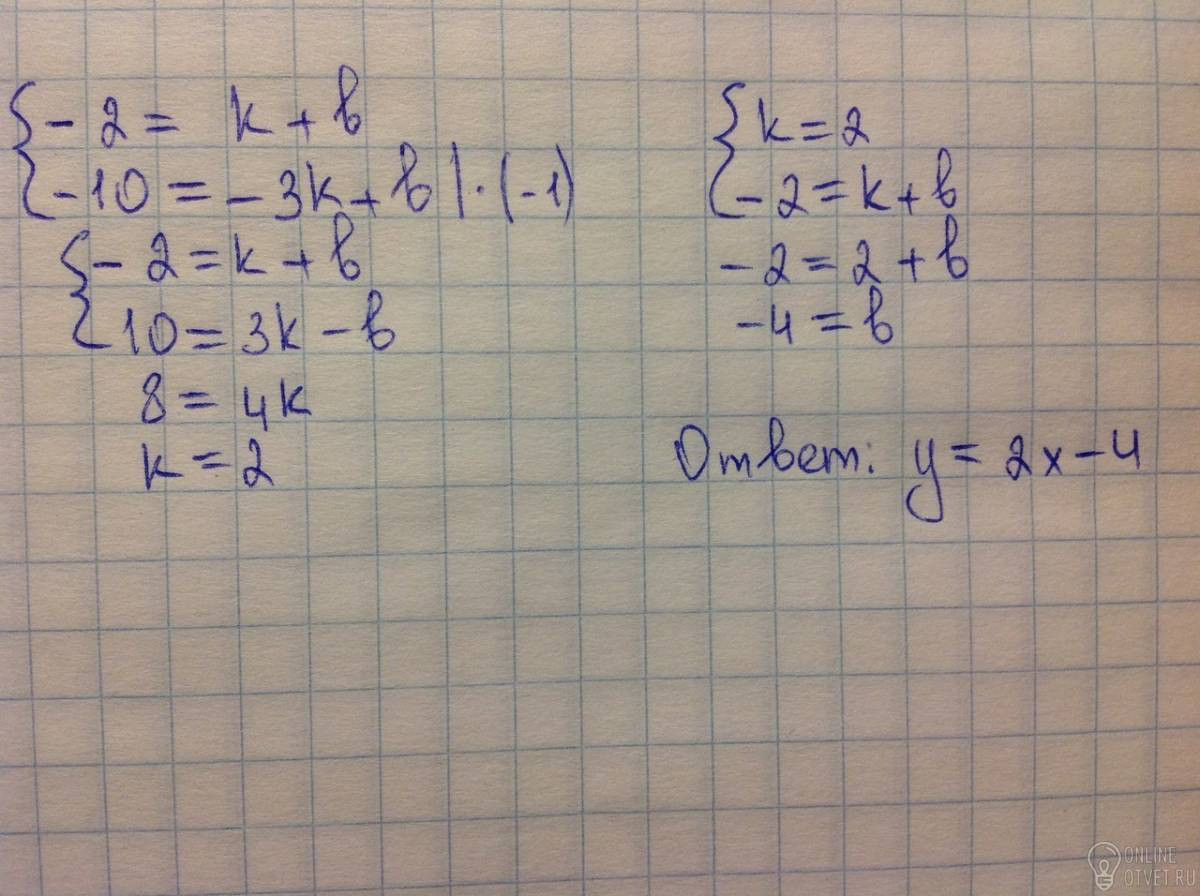 { - 2 = k + b
{ -10 = - 3k + b | · (-1)
{ - 2 = k + b
{ 10 = 3k - b
8 = 4k
k = 2
{ k = 2
{ - 2 = k + b
- 2 = 2 + b
-4 = b
Ответ: y = 2x - 4
ONLINE
OTVET.RU